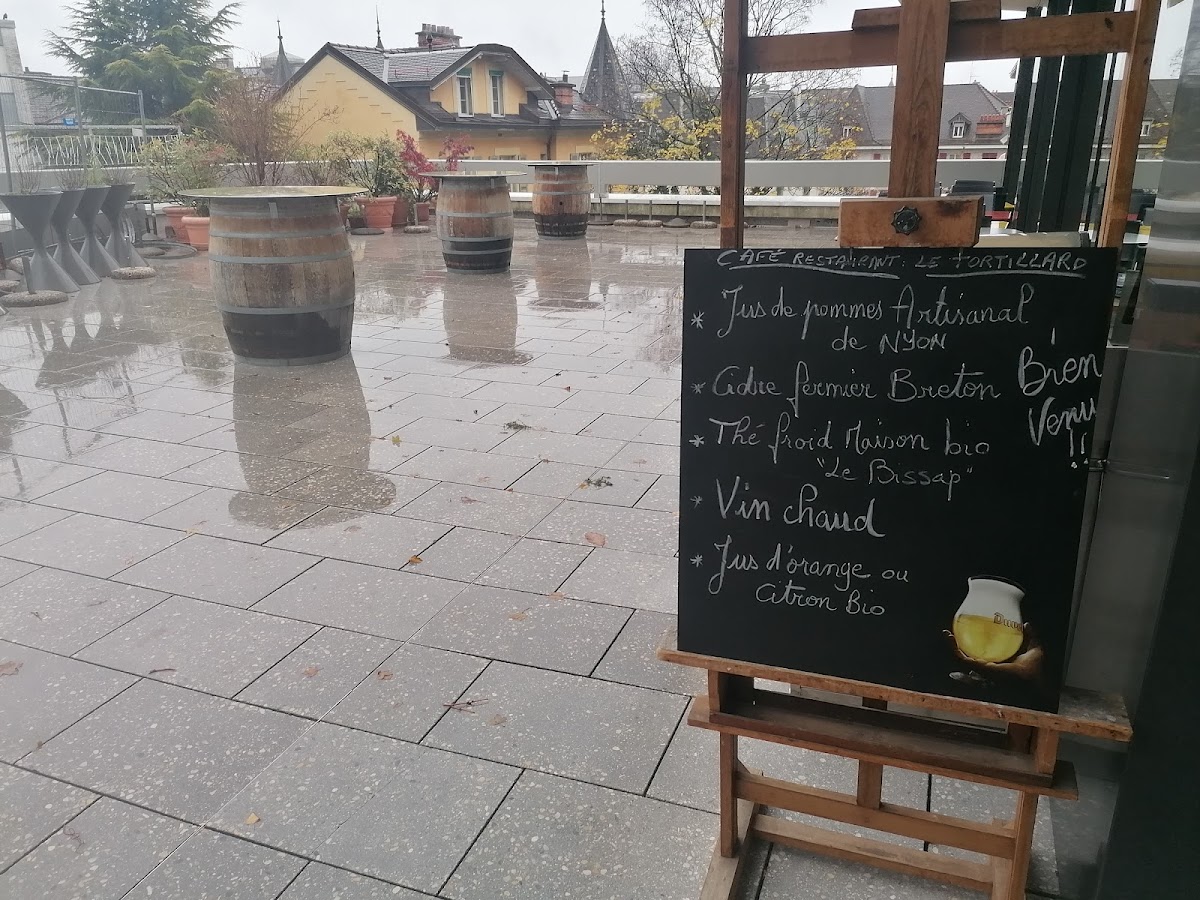 CAFÉ RESTAURANT: LE TORTILLARD
* Jus de pommes Artisanal
de NYON
* Cidre fermier Breton
* Thé froid Maison bio
"Le Bissap"
* Vin chaud
* Jus d'orange ou
citron Bio
Bien
Venu
!!